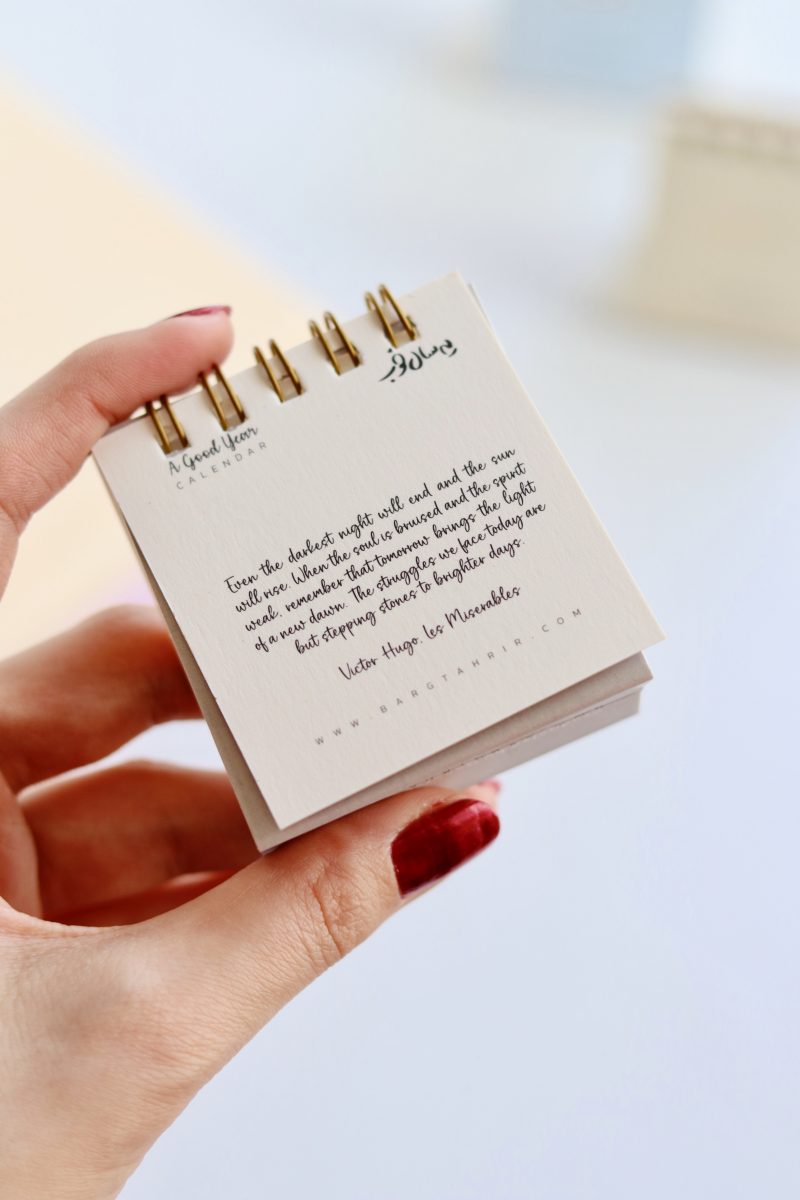 یه سال خوب
A Good Year
CALENDAR
Even the darkest night will end and the sun
will rise. When the soul is bruised and the spirit
weak, remember that tomorrow brings the light
of a new dawn. The struggles we face today are
but stepping stones to brighter days.
Victor Hugo, Les Miserables
WWW.BARGTAHRIR.COM